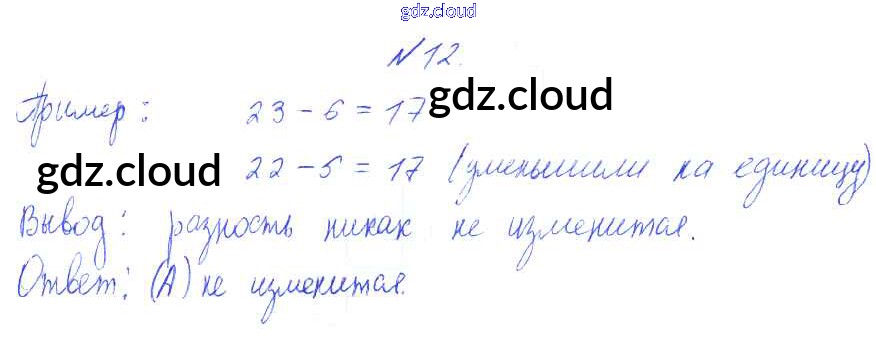 gdz.cloud
№12.
Пример: 23 - 6 = 17 gdz.cloud
gdz.cloud 22 - 5 = 17 (уменьшили на единицу)
Вывод: разность никак не изменится.
Ответ: (А) не изменится.